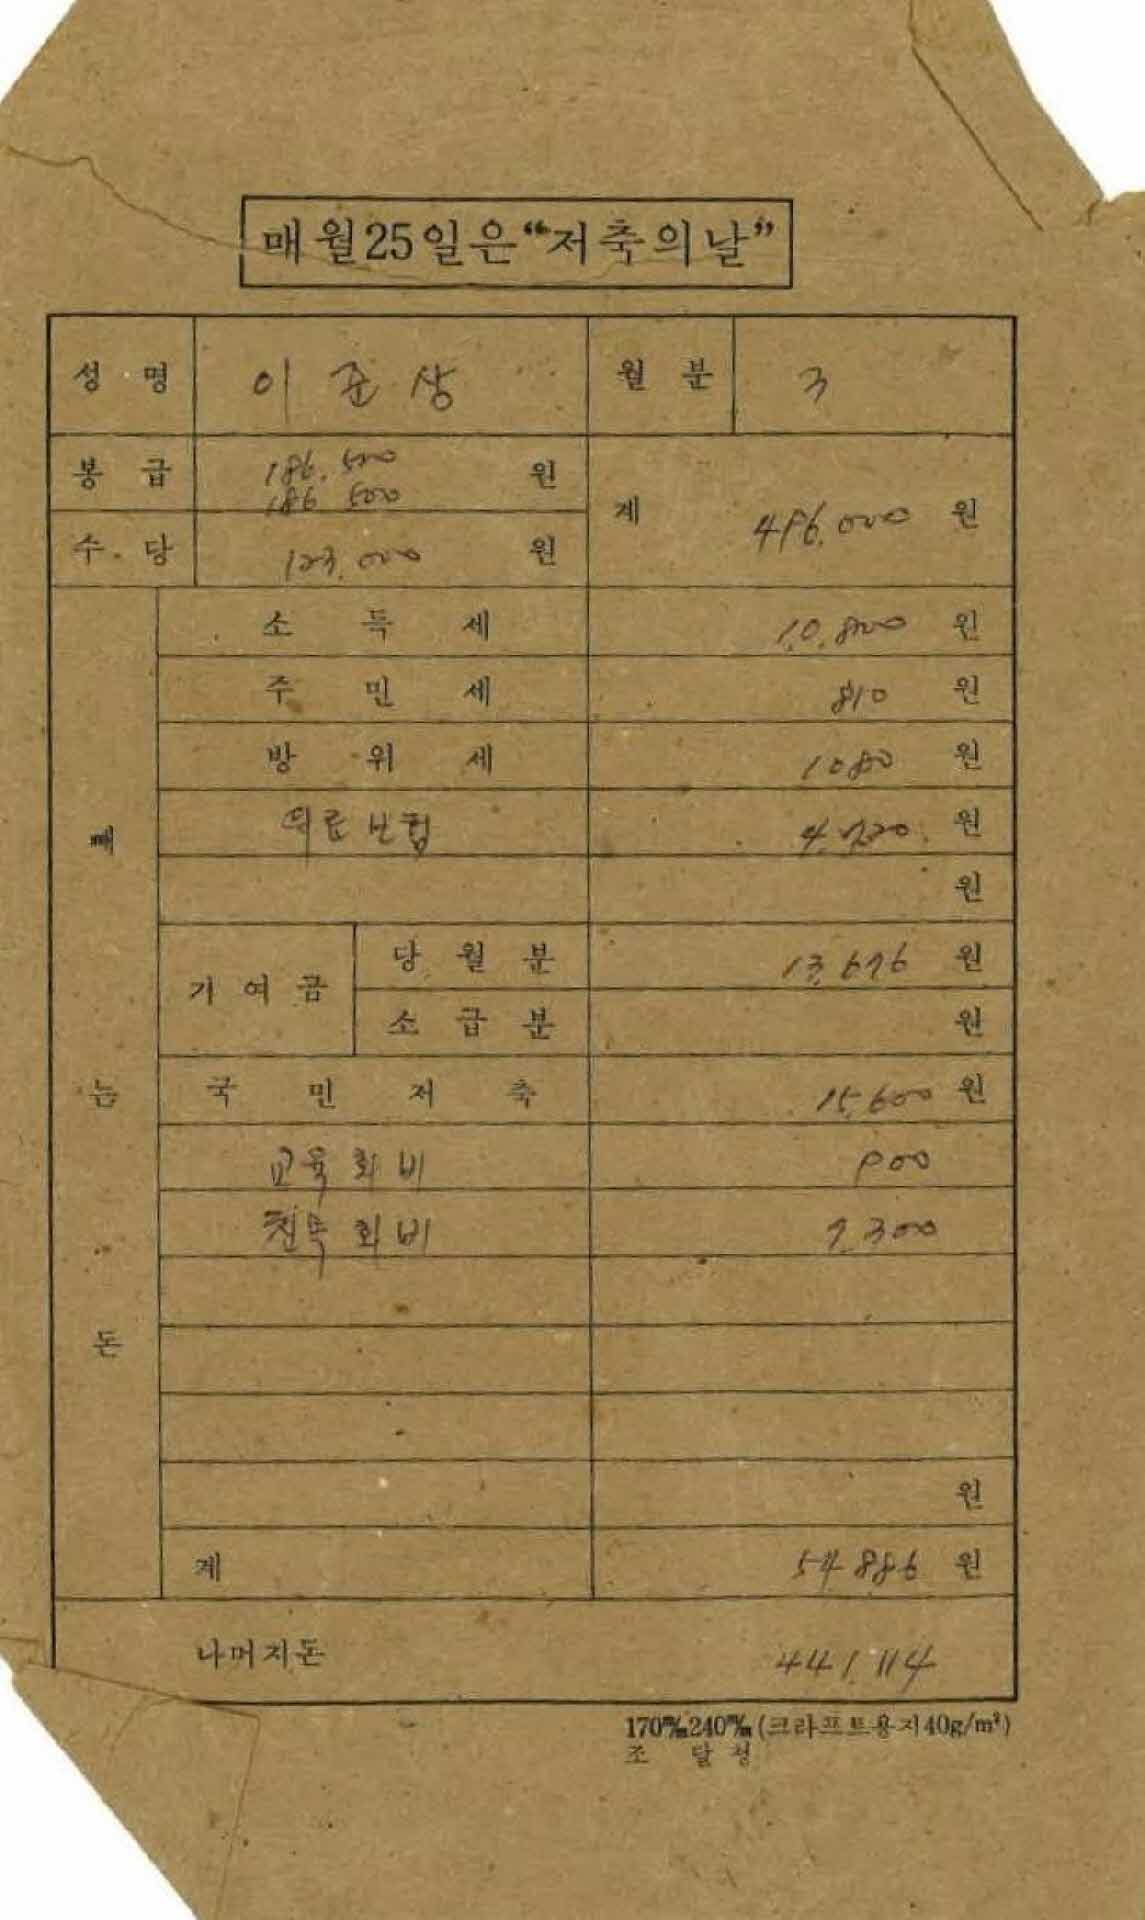 매월25일은“저축의날”
성 명 이 준 상 월 분 3
봉 급 186.500 원
186 500
계 496.000 원
수 당 123.000 원
소 득 세 10.800 원
주 민 세 810 원
방 위 세 1080 원
의료보험 4.720 원
원
기여금 당 월 분 13.676 원
소 급 분 원
빼는돈
국 민 저 축 15.600 원
교육회비 900
친목회비 7.300
원
계 54 886 원
나머지돈 441.114
170㎜240㎜(크라프트용지40g/m²)
조 달 청